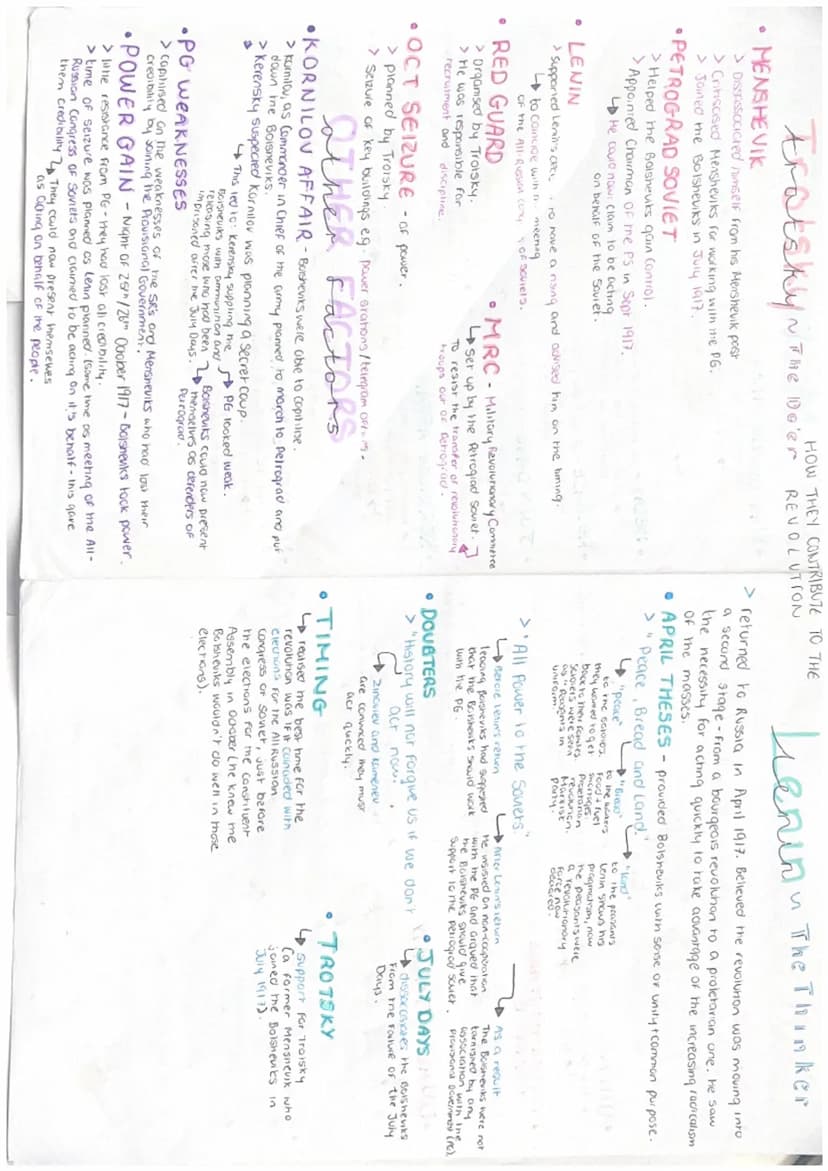 HOW THEY CONTRIBUTE TO THE
REVOLUTION
Trotsky n The Do'er
• MENSHEVIK
> Dissassociated himself from his Menshevik past
> Criticised Mensheviks for working with the PG.
> Joined the Bolsheviks in July 1917.
• PETROGRAD SOVIET
> Helped the Bolsheviks gain control.
> Appointed Chairman of the PS in Sept 1917.
↳ He could now claim to be acting
on behalf of the Soviet.
• LENIN
> Supported Lenin's to have a rising and advised him on the timing.
↳ to coincide with meeting
of the All-Russian of Soviets.
• RED GUARD
> Organised by Trotsky.
> He was responsible for
recruitment and discipline.
• MRC - Military Revolutionary Committee
↳ Set up by the Petrograd Soviet.
To resist the transfer of revolutionary
troops out of Petrograd.
• OCT SEIZURE - of power.
> planned by Trotsky.
> Seizure of key buildings e.g. power stations/telegram
OTHER FACTORS
other factors
• KORNILOV AFFAIR - Bolsheviks were able to capitilise.
> Kornilov, as Commander in Chief of the army planned to march to Petrograd and put
down the Bolsheviks.
> Kerensky suspected Kornilov was planning a secret coup.
↳ This led to: Kerensky suppling the
Bolsheviks with ammunition and
releasing those who had been
imprisoned after the July Days.
→ PG looked weak.
→ Bolsheviks could now present
themselves as defenders of
Petrograd.
• PG WEAKNESSES
> Capitilised on the weaknesses of the SRs and Mensheviks who had lost their
credibility by joining the Provisional Government.
• POWER GAIN - Night of 25th/26th October 1917 - Bolsheviks took power.
> little resistance from PG - they had lost all credibility.
> time of seizure was planned as Lenin planned. (same time as meeting of the All-
Russian Congress of Soviets and claimed to be acting on it's behalf - this gave
them credibility)
↳ They could now present themselves
as acting on behalf of the people.
Lenin n The Thinker
> returned to Russia in April 1917. Believed the revolution was moving into
a second stage - from a bourgeois revolution to a proletarian one. he saw
the necessity for acting quickly to take advantage of the increasing radicalism
of the masses.
• APRIL THESES - provided Bolsheviks with sense of unity + common purpose.
> "Peace, Bread and Land."
↳ "peace"
to the soldiers.
they wanted to get
back to their families
soldiers were seen
as "Peasants in
uniform.
↳ "Bread"
to the workers
Food + fuel
shortages.
Proletarian
revolution.
Marxist
party.
↳ "land"
to the peasants
Lenin shows his
pragmatism, now
the peasants were
a revolutionary
force now
> 'All Power to the Soviets.'
↳ Before Lenin's return
leading Bolsheviks had suggested
that the Bolsheviks should work
with the PG.
↳ After Lenin's return
He insisted on non-cooperation
with the PG and argued that
the Bolsheviks should give
support to the Petrograd Soviet.
↳ As a result
The Bolsheviks were not
tarnished by any
association with the
Provisional Government (PG).
• DOUBTERS
> "History will not forgive us if we don't
act now."
↳ Zinoviev and Kamenev
are convinced they must
act quickly.
• JULY DAYS
↳ dissassociates the Bolsheviks
from the failure of the July
Days.
• TIMING
↳ realised the best time for the
revolution was if it coincided with
elections for the All Russian
congress of Soviet, just before
the elections for the Constituent
Assembly in October (he knew the
Bolsheviks wouldn't do well in those
elections).
• TROTSKY
↳ Support for Trotsky
(a former Menshevik who
joined the Bolsheviks in
July 1917).